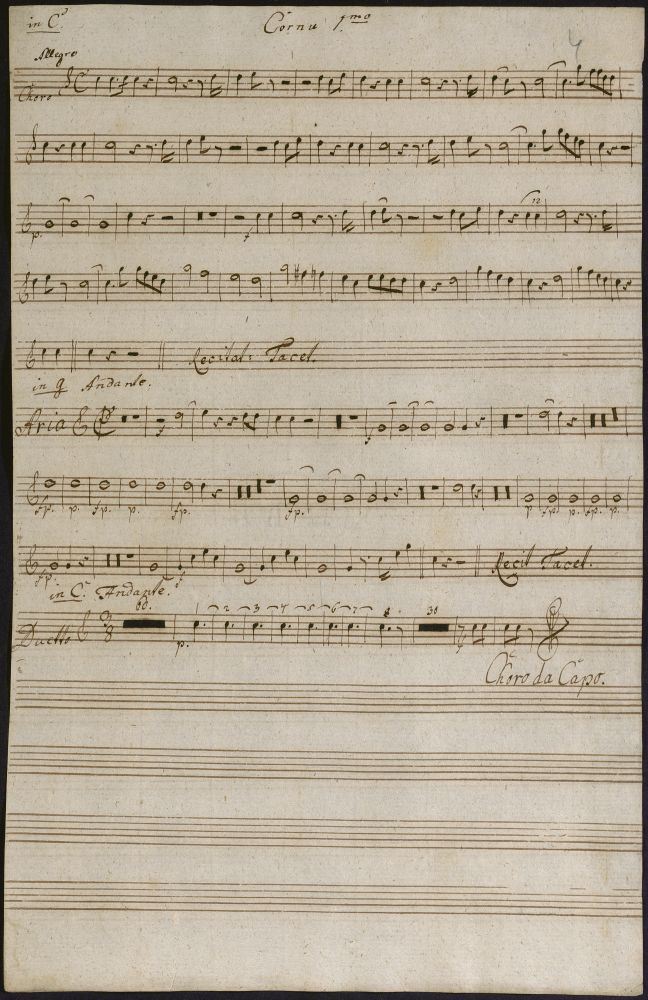 in C. Cornu 1mo
4
Allegro
Choro
p. f n
Recitat: Tacet.
in g Andante.
Aria
f
fp. p. fp. p. fp. fp. p fp. p. fp. p.
fp. f Recit Tacet.
in C. Andante.
60. 2 3 4 5 6 7 8 30
Duetto 3 8 p.
Choro da Capo.